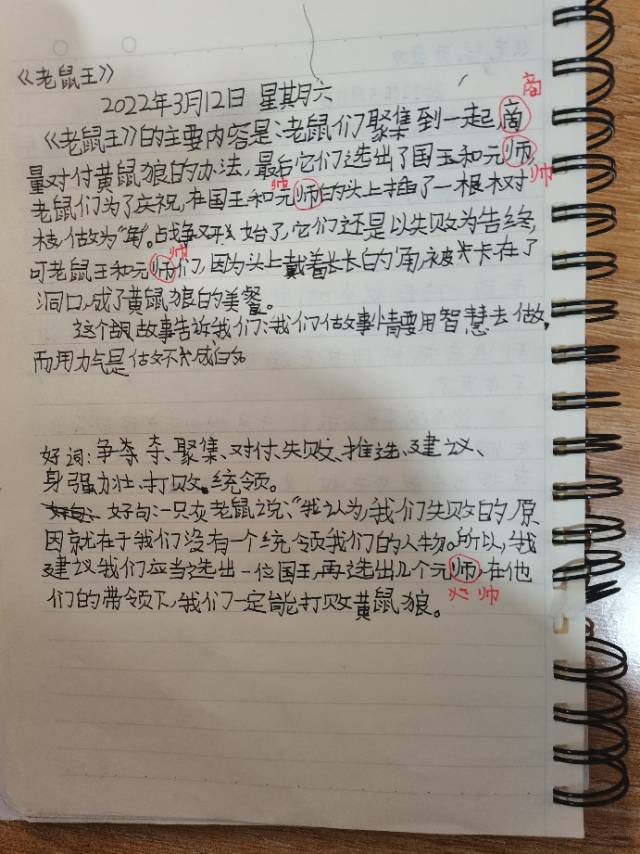 《老鼠王》
2022年3月12日 星期六
商
《老鼠王》的主要内容是:老鼠们聚集到一起,啇
量对付黄鼠狼的办法,最后它们选出了国王和元师,
帅
帅
老鼠们为了庆祝,在国王和元师的头上插了一根树
枝做为"角"。战争又开始了,它们还是以失败为告终,
帅
可老鼠王和元师们,因为头上戴着长长的"角",被卡在了
洞口,成了黄鼠狼的美餐。
这个故事告诉我们:我们做事情需要用智慧去做,
而用力气是做不成的。
好词:争夺、聚集、对付、失败、推选、建议、
身强力壮、打败、统领。
好句:一只灰老鼠说:"我认为,我们失败的原
因就在于我们没有一个统领我们的人物。所以,我
建议我们应当选出一位国王,再选出几个元师,在他
帅
们的带领下,我们一定能打败黄鼠狼。